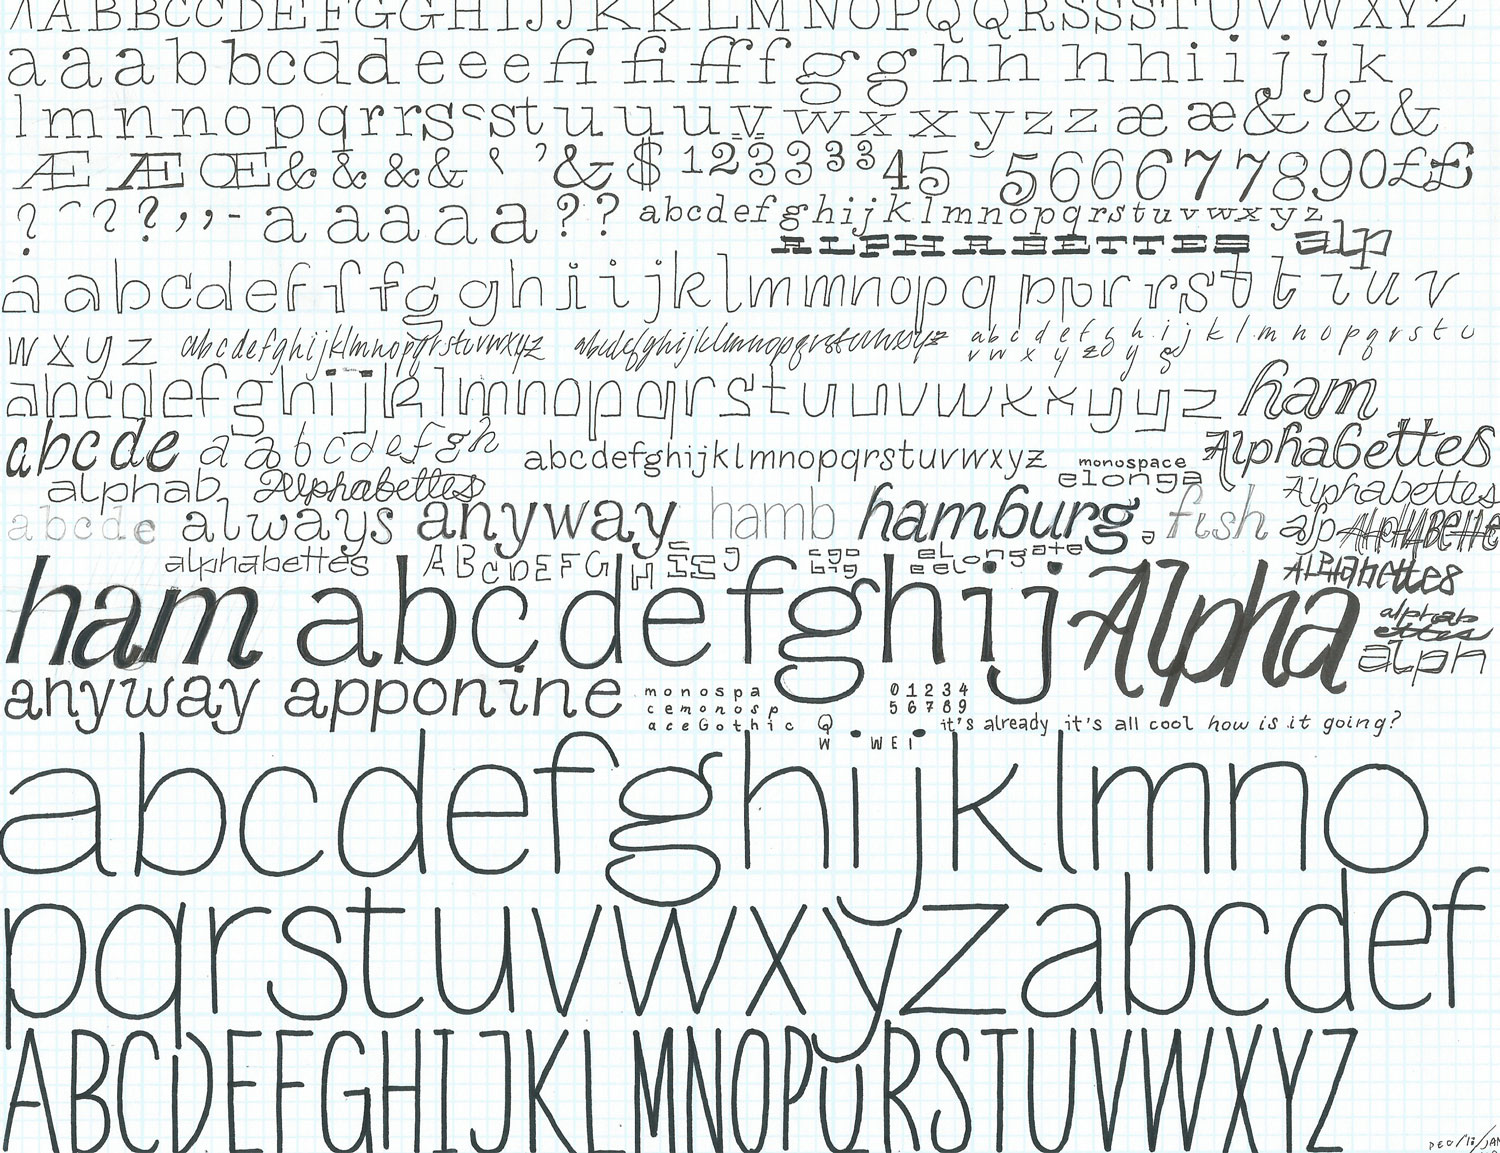 AABBCCDEEFGGHIJJKKLMNOPQQRSSSTUVWXYZ
aaabbcddeeefififfffgghhhhiijjk
lmnnopqrrssstuuuvwxxyzzææ&&&
ÆÆŒ&&&&‘’&$1233334555666778990££
abcdefghijklmnopqrstuvwxyz
?~??,,-aaaaa??
ALPHABETTES alp
aabcdefffgghiijklmmnopqpprrsttuuv
wxyz abcdefghijklmnopqrstuvwxyz abcdefghijklmnopqrstuvwxyz abcdefghijklmnopqrstu
vwxyz
abcdefghijklmnopqrstuuvwxxyyz ham
abcde aabcdefgh abcdefghijklmnopqrstuvwxyz monospace Alphabettes
elonga
alphab Alphabettes Alphabettes
abcde always anyway hamb hamburg, fish alp ALPHABETTE
alphabettes ABCDEFG elongate ALPHAbettes
ham abcdefghij Alpha
alphab
ettes
alph
anyway apponine monospa 01234
cemonosp 56789
aceGothic Q it's already it's all cool how is it going?
W WEI
abcdefghijklmno
pqrstuvwxyzabcdef
ABCDEFGHIJKLMNOPQRSTUVWXYZ